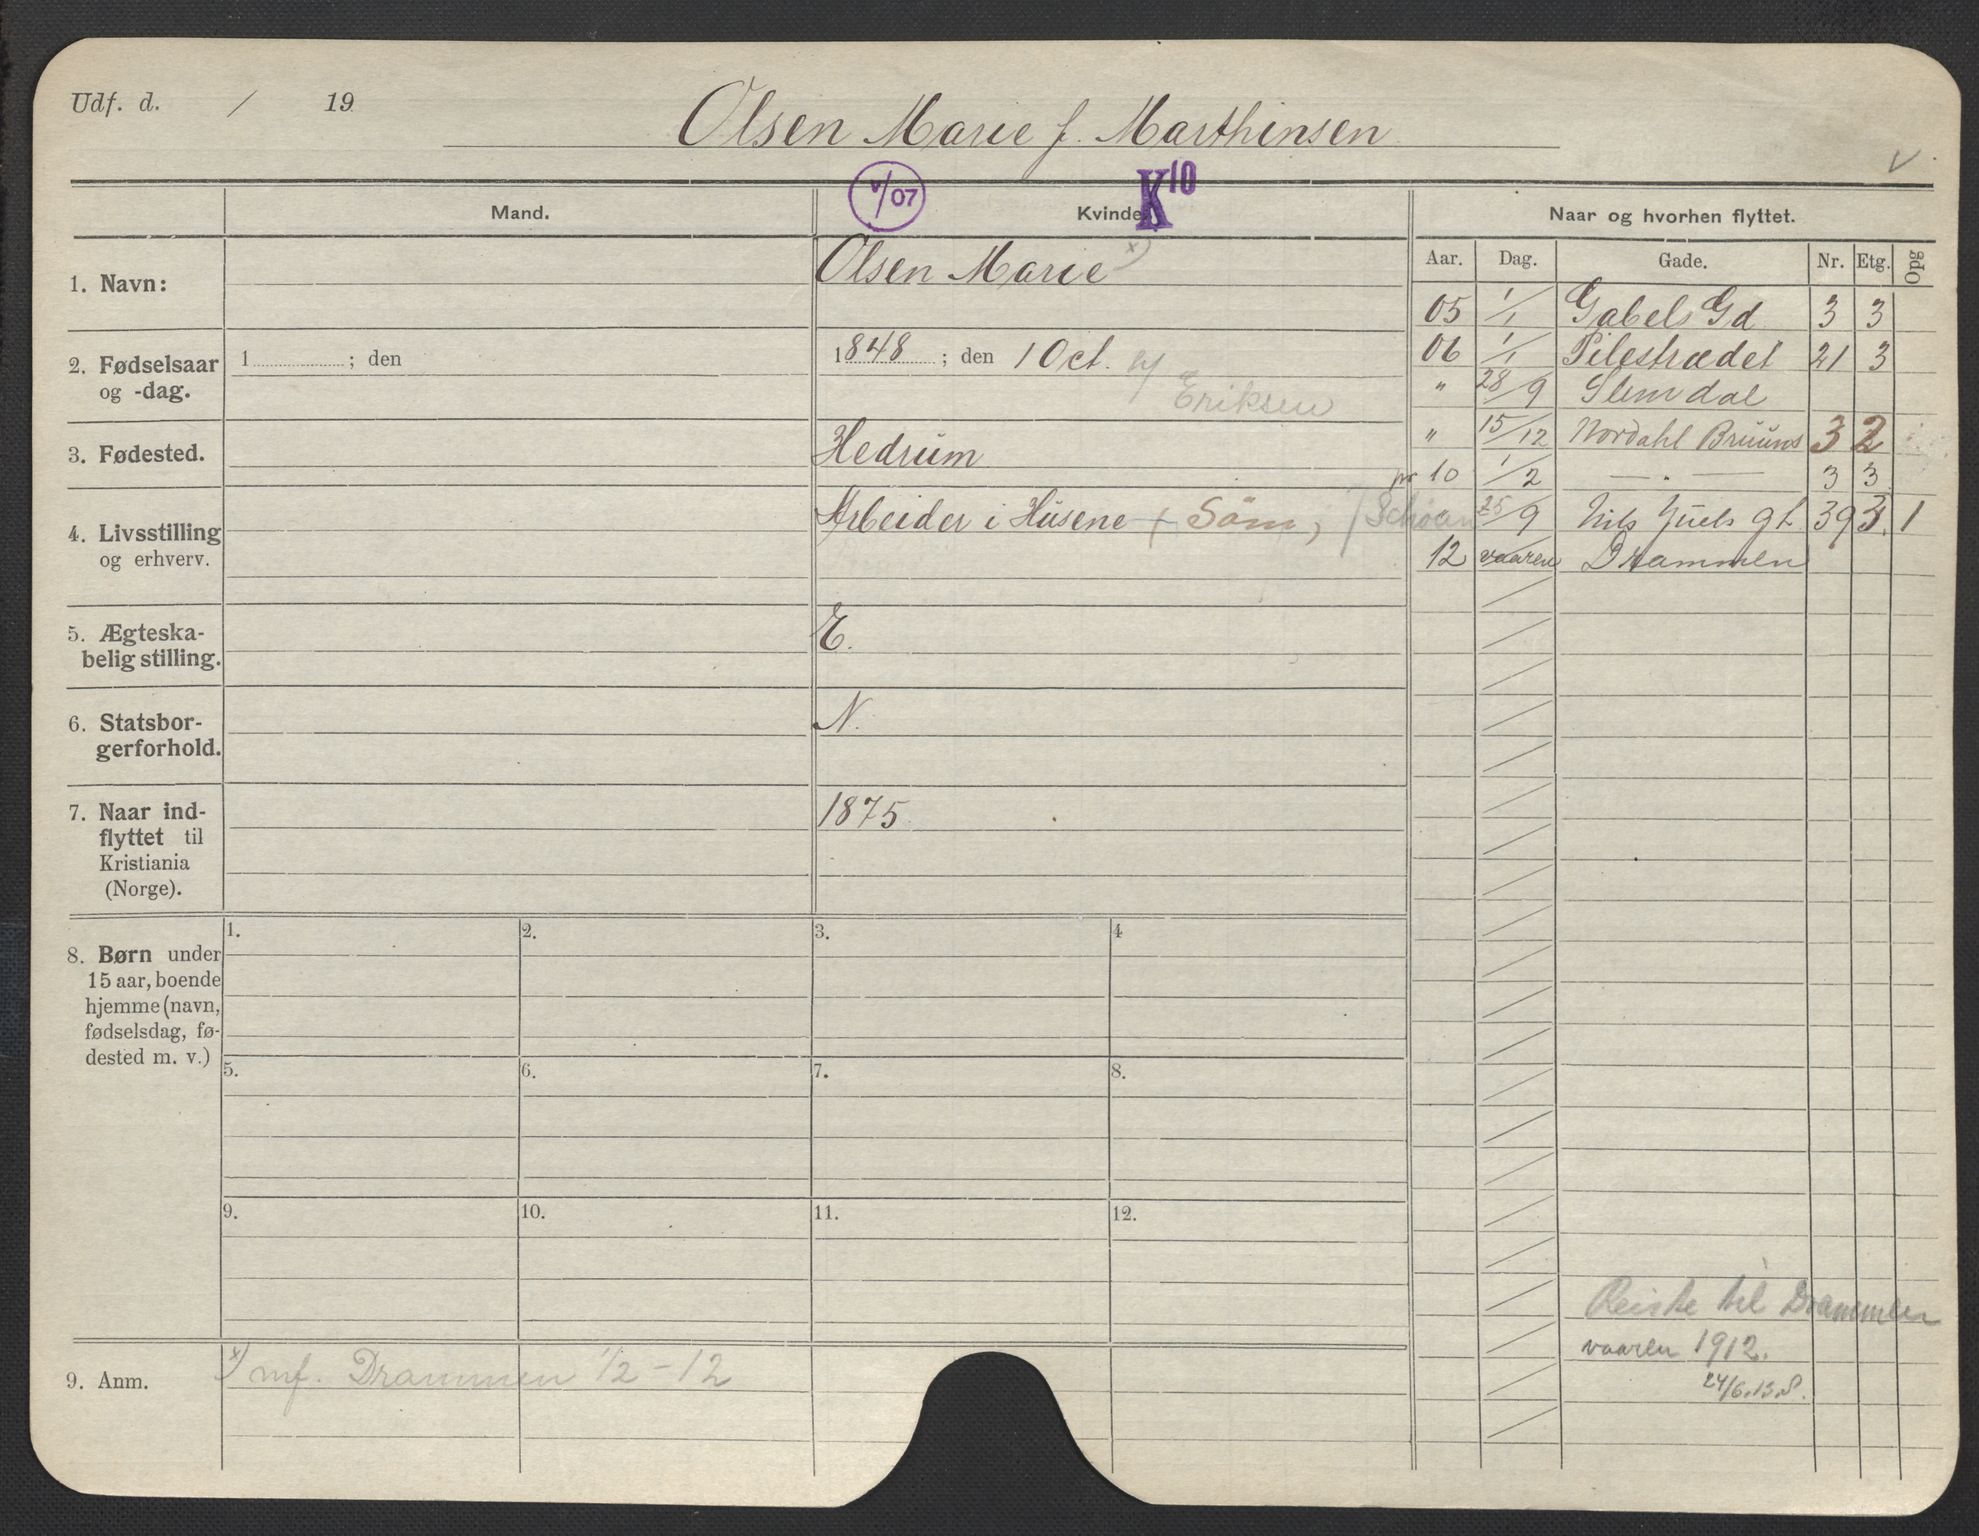 Udf. d. / 19
Olsen Marie f. Marthinsen
V
V/07
K10
Mand.
Kvinde
Naar og hvorhen flyttet.
Aar. Dag. Gade. Nr. Etg. Opg
1. Navn:
Olsen Marie x)
05 1/1 Gabels Gd 3 3
2. Fødselsaar
og -dag.
1 ; den
1848 ; den 1 Oct.
Eriksen
06 1/1 Pilestrædet 21 3
" 28/9 Slemdal
3. Fødested.
Hedrum
" 15/12 Nordahl Bruuns 3 2
pr 10 1/2 — " — 3 3
4. Livsstilling
og erhverv.
Arbeider i Husene (Søm,
" 25/9 Nils Juels gt. 39 3. 1
12 vaaren Drammen
5. Ægteska-
belig stilling.
E.
6. Statsbor-
gerforhold.
N.
7. Naar ind-
flyttet til
Kristiania
(Norge).
1875
8. Børn under
15 aar, boende
hjemme (navn,
fødselsdag, fø-
dested m. v.)
1. 2. 3. 4
5. 6. 7. 8.
9. 10. 11. 12.
Reiste til Drammen
vaaren 1912.
24/6.13.S.
9. Anm.
x) mf. Drammen 1/2-12